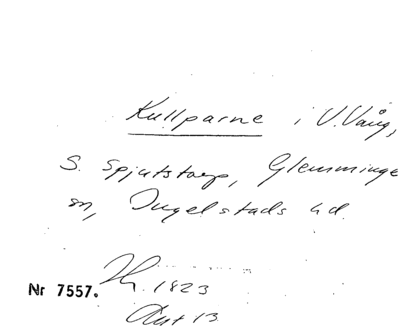 Kullparne i V. Vång,
S. Spjutstorp, Glemminge
sn, Ingelstads hd.
1823
Nr 7557.
Akt 13.